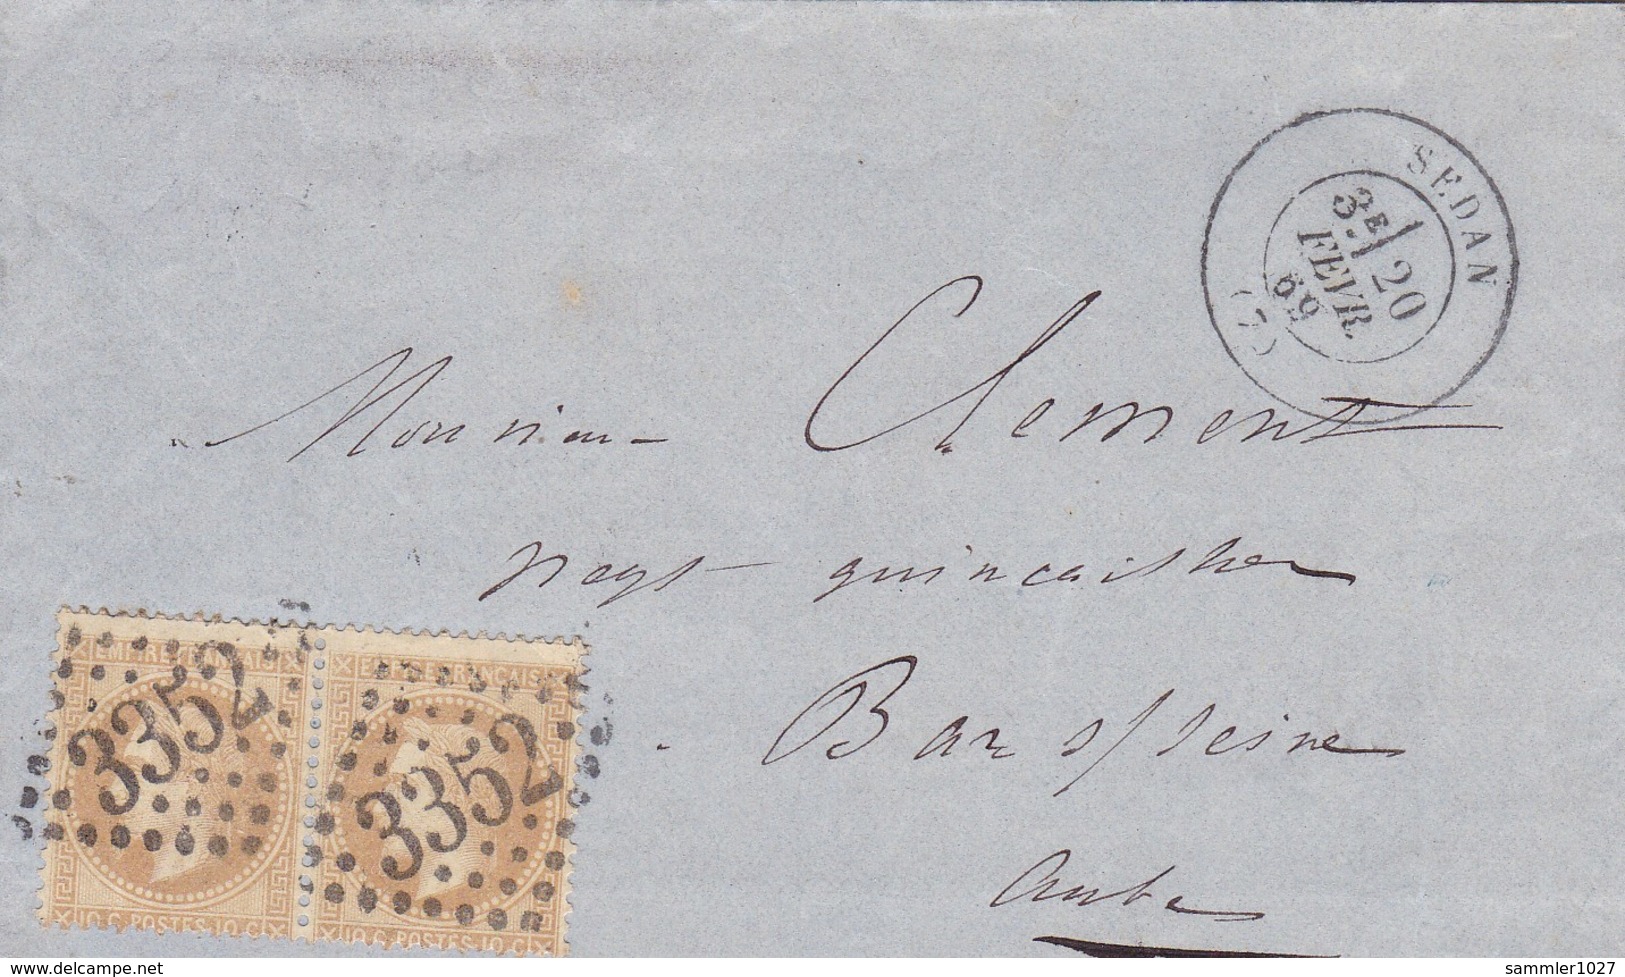 SEDAN
3E
20
FEVR.
69
(7)
Monsieur Clement
negt quincailler
Bar s/ Seine
Aube
EMPIRE FRANÇAIS
EMPIRE FRANÇAIS
3352
3352
10 C. POSTES 10 C.
10 C. POSTES 10 C.
www.delcampe.net
sammler1027